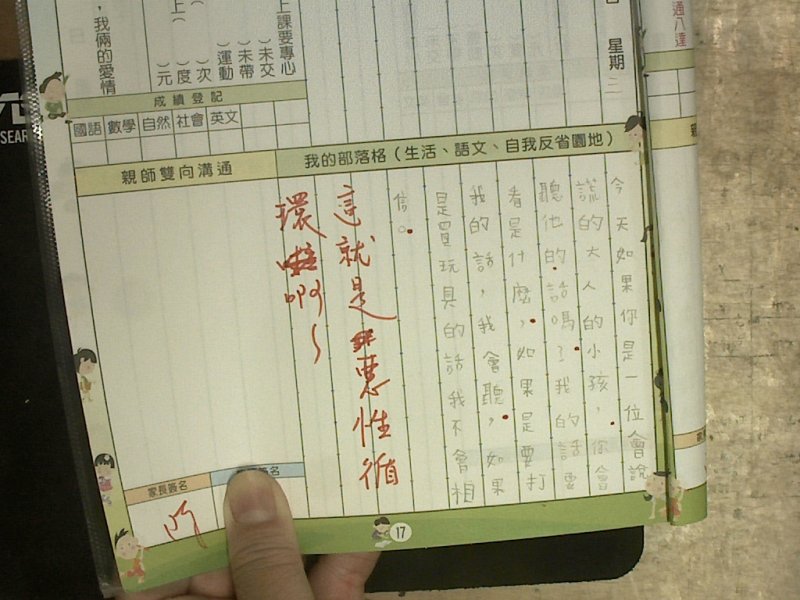 通八達
星期二
上課要專心
)未交
)未帶
)運動
(
)次
(
)度
上(
)元
,我倆的愛情
SEAR
成績登記
國語 數學 自然 社會 英文
我的部落格(生活、語文、自我反省園地)
親師雙向溝通
今天如果你是一位會說
謊的大人的小孩,你會
聽他的話嗎?我的話要
看是什麼,如果是要打
我的話,我會聽,如果
是買玩具的話我不會相
信。
這就是惡性循
環啊~
家長簽名
簽名
17